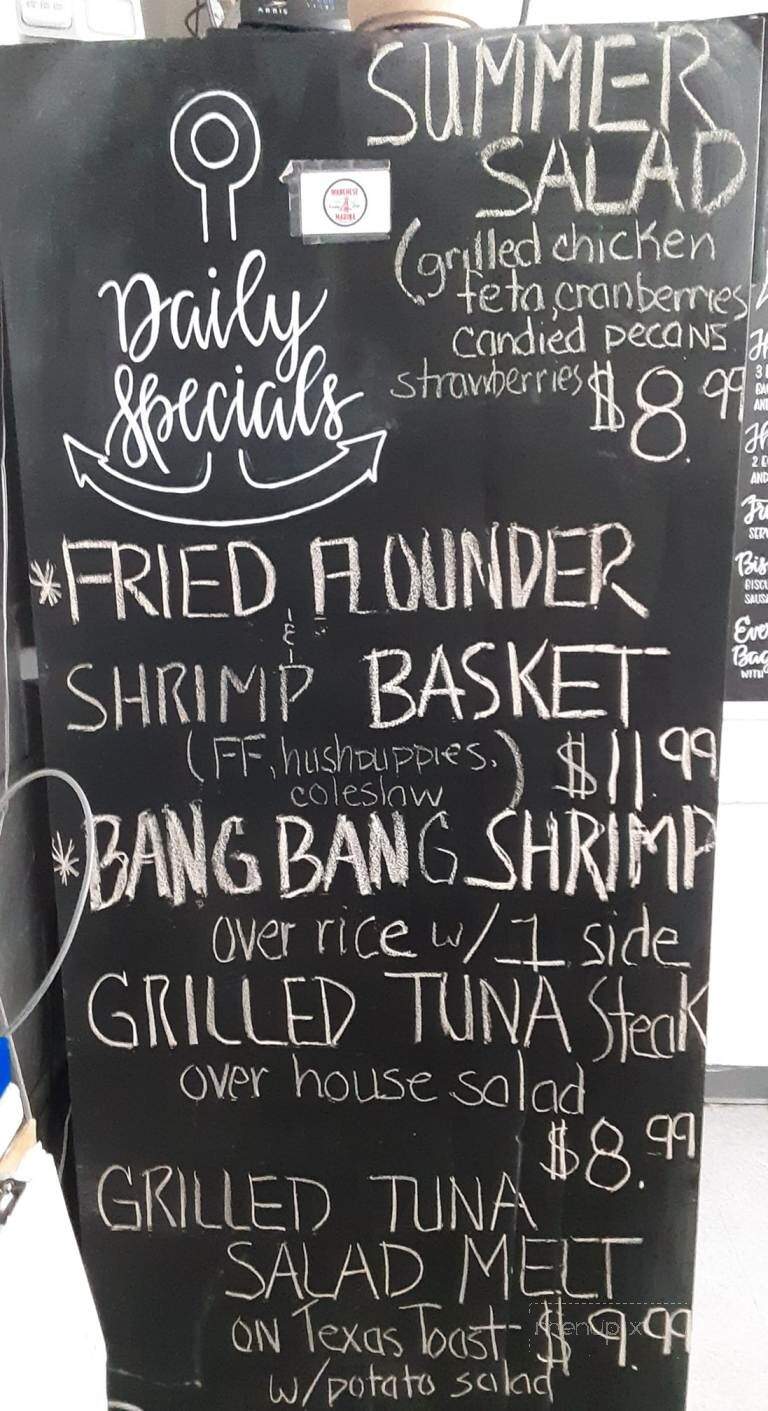 ARRIS
SUMMER
SALAD
(grilled chicken
feta, cranberries
candied pecans
strawberries $8.99
WANCHESE
MARINA
Daily
Specials
*FRIED FLOUNDER
&
SHRIMP BASKET
(FF, hushpuppies,
coleslaw) $11.99
*BANG BANG SHRIMP
over rice w/1 side
GRILLED TUNA Steak
over house salad
$8.99
GRILLED TUNA
SALAD MELT
ON Texas Toast $9.99
w/potato salad
menupix
3
AND
2
AND
SERV
Bis
BISCU
SAUSA
Eve
Bag
WITH